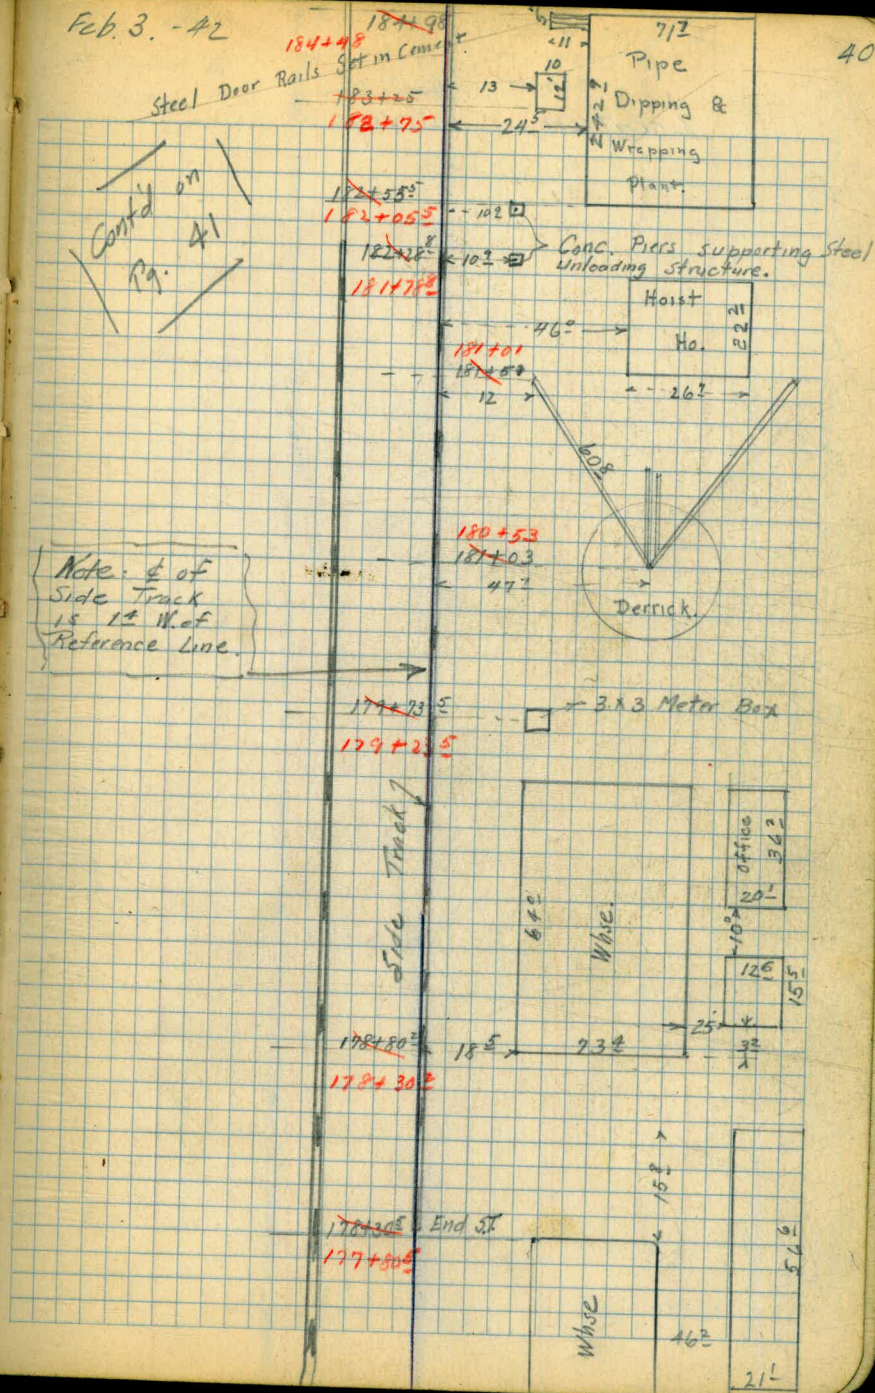 Feb. 3. -42
40
184+98
184+48
Steel Door Rails Set in Cement.
183+25
183+75
11
10
12'
13
24⁵
71⁷
242⁹
Pipe
Dipping &
Wrapping
Plant.
Cont'd on
Pg. 41
182+55⁵
182+05⁵
10²
182+28⁸
181+78⁸
10⁹
Conc. Piers supporting Steel
Unloading Structure.
Hoist
Ho.
22²
46⁰
26²
181+01
181+51
12
60⁸
180+53
181+03
47²
Derrick.
Note: ℄ of
Side Track
is 1⁴ W. of
Reference Line.
179+73⁵
179+23⁵
3 x 3 Meter Box
Side Track
64⁰
Whse.
Office
36²
20¹
10⁰
12⁶
15⁵
25
3²
178+80²
178+30²
18⁵
73⁴
15⁸
178+30⁵
End S.T.
177+80⁵
Whse
46²
51⁶
21¹